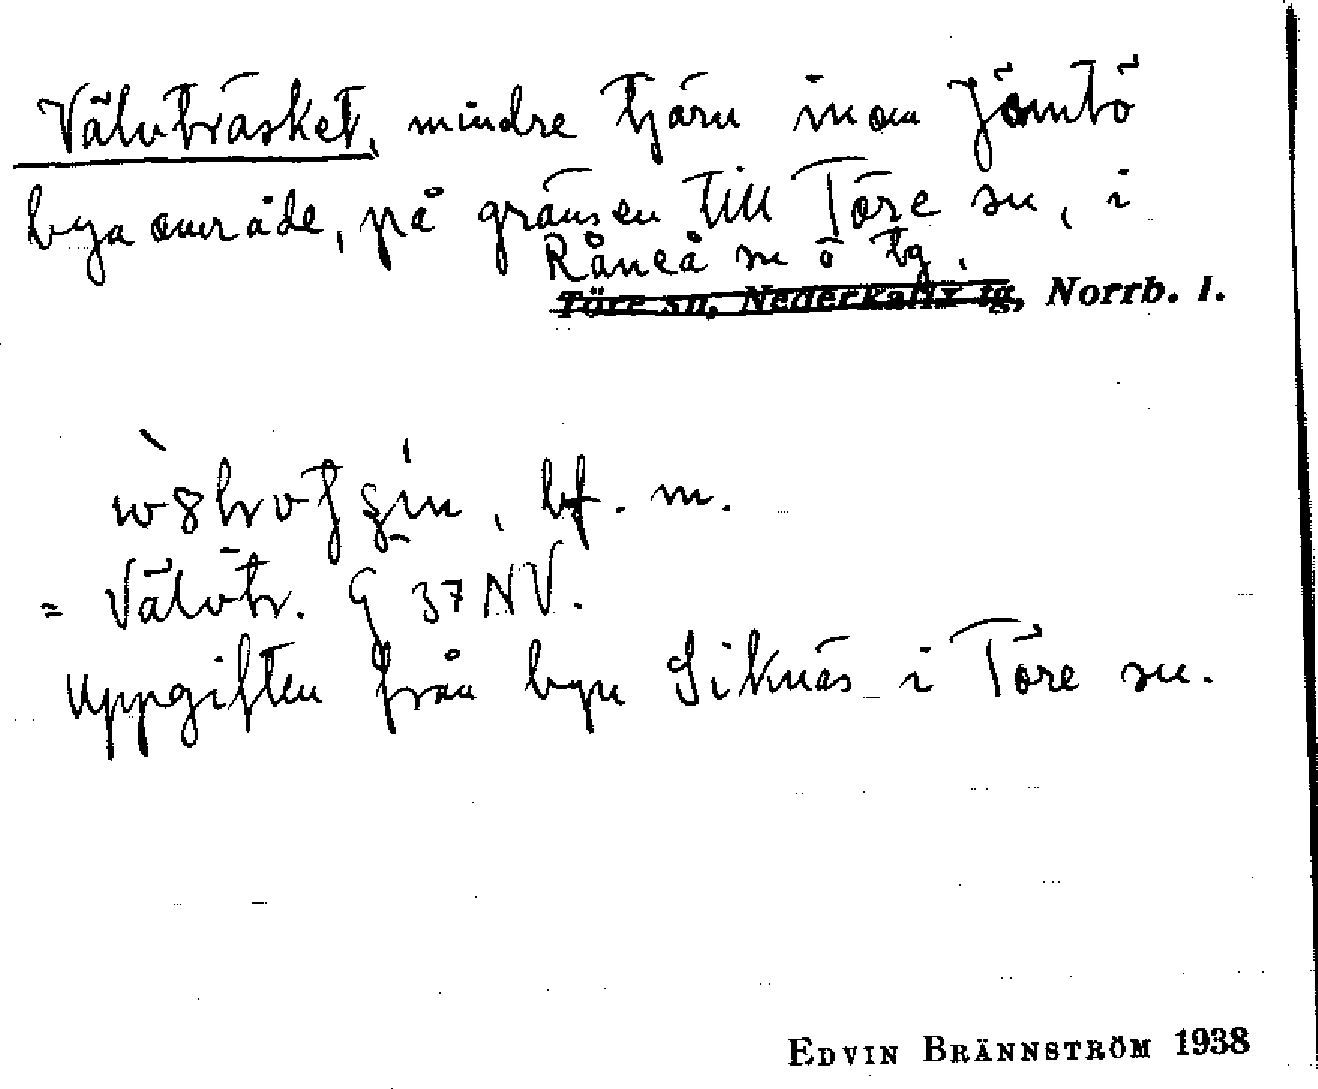 Välvträsket, mindre tjärn inom Jämtö
byaområde, på gränsen till Töre sn, i
Råneå sn o tg.
Töre sn, Nederkalix tg, Norrb. l.
bf. m.
= Välvtr. G 37 NV.
Uppgiften från byn Siknäs i Töre sn.
EDVIN BRÄNNSTRÖM 1938